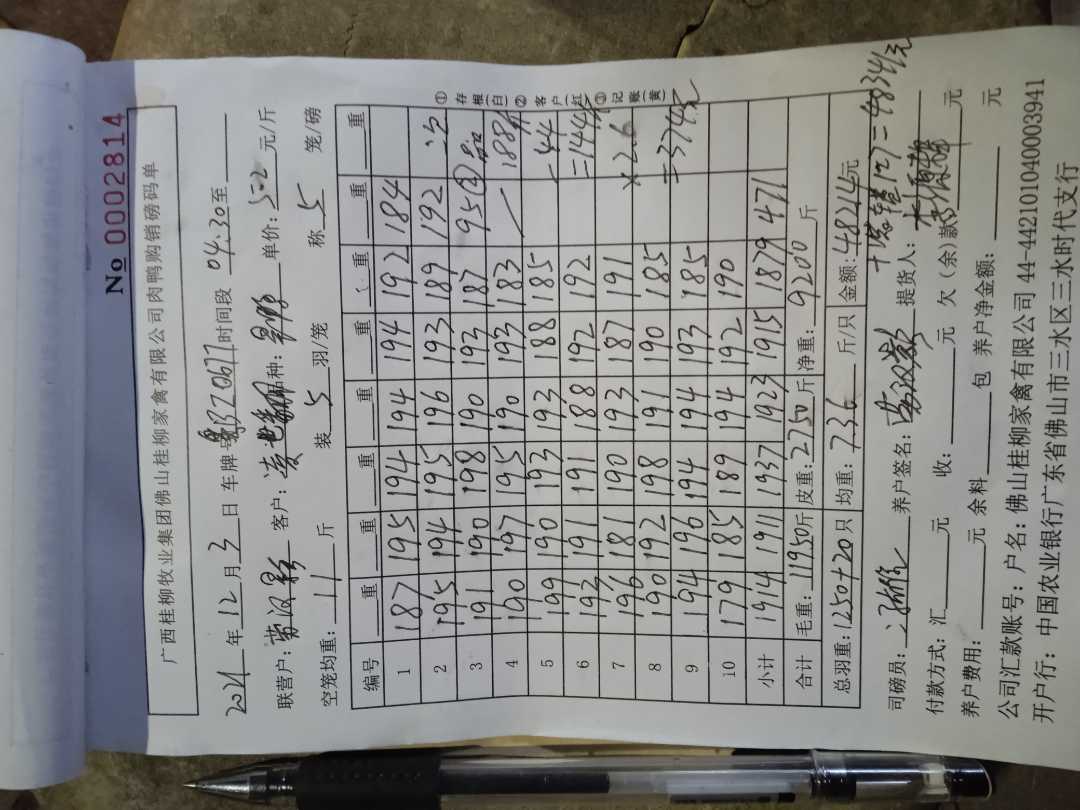 № 0002814
广西桂柳牧业集团佛山桂柳家禽有限公司肉鸭购销磅码单
2021年 12 月 3 日 车牌号 时间段 04:30至
联营户: 客户: 品种: 单价: 5.2 元/斤
空笼均重: 11 斤 装 5 羽/笼 称 5 笼/磅
编号 重 重 重 重 重 重 重 重
1 187 195 194 194 194 192 184
2 195 194 195 196 193 189 192 次
3 191 190 198 190 193 187 95②
4 190 197 195 190 193 183 188斤
5 199 190 193 193 188 185 -44
6 192 191 191 188 192 192 =144斤
7 196 181 190 193 187 191 ×2.6
8 190 192 198 191 190 185 =374元
9 194 196 194 194 193 185
10 179 185 189 194 192 190
小计 1914 1911 1937 1923 1915 1879 471
合计 毛重: 11950斤 皮重: 2750斤 净重: 9200 斤
总羽重: 1250+20只 均重: 7.36 斤/只 金额: 48214元
127=48341元
司磅员: 养户签名: 提货人:
付款方式: 汇 元 收: 元 欠(余)款 元
养户费用: 元 余料 包 养户净金额: 元
公司汇款账号: 户名: 佛山桂柳家禽有限公司 44-442101040003941
开户行: 中国农业银行广东省佛山市三水区三水时代支行
①存根(白)②客户(红)③记账(黄)